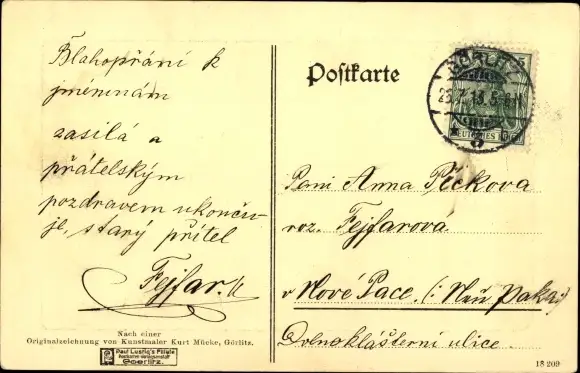 Blahopřání k
jmeninám
zasílá a
přátelským
pozdravem ukonču-
je, starý přítel
Fejfar
Nach einer
Originalzeichnung von Kunstmaler Kurt Mücke, Görlitz.
Paul Lustig's Filiale
Goerlitz.
Postkarte
GÖRLITZ
Paní Anna Pičkova
roz. Fejfarová
v Nové Pace. (: Neu Paka:)
Dolnoklášterní ulice.
18 209